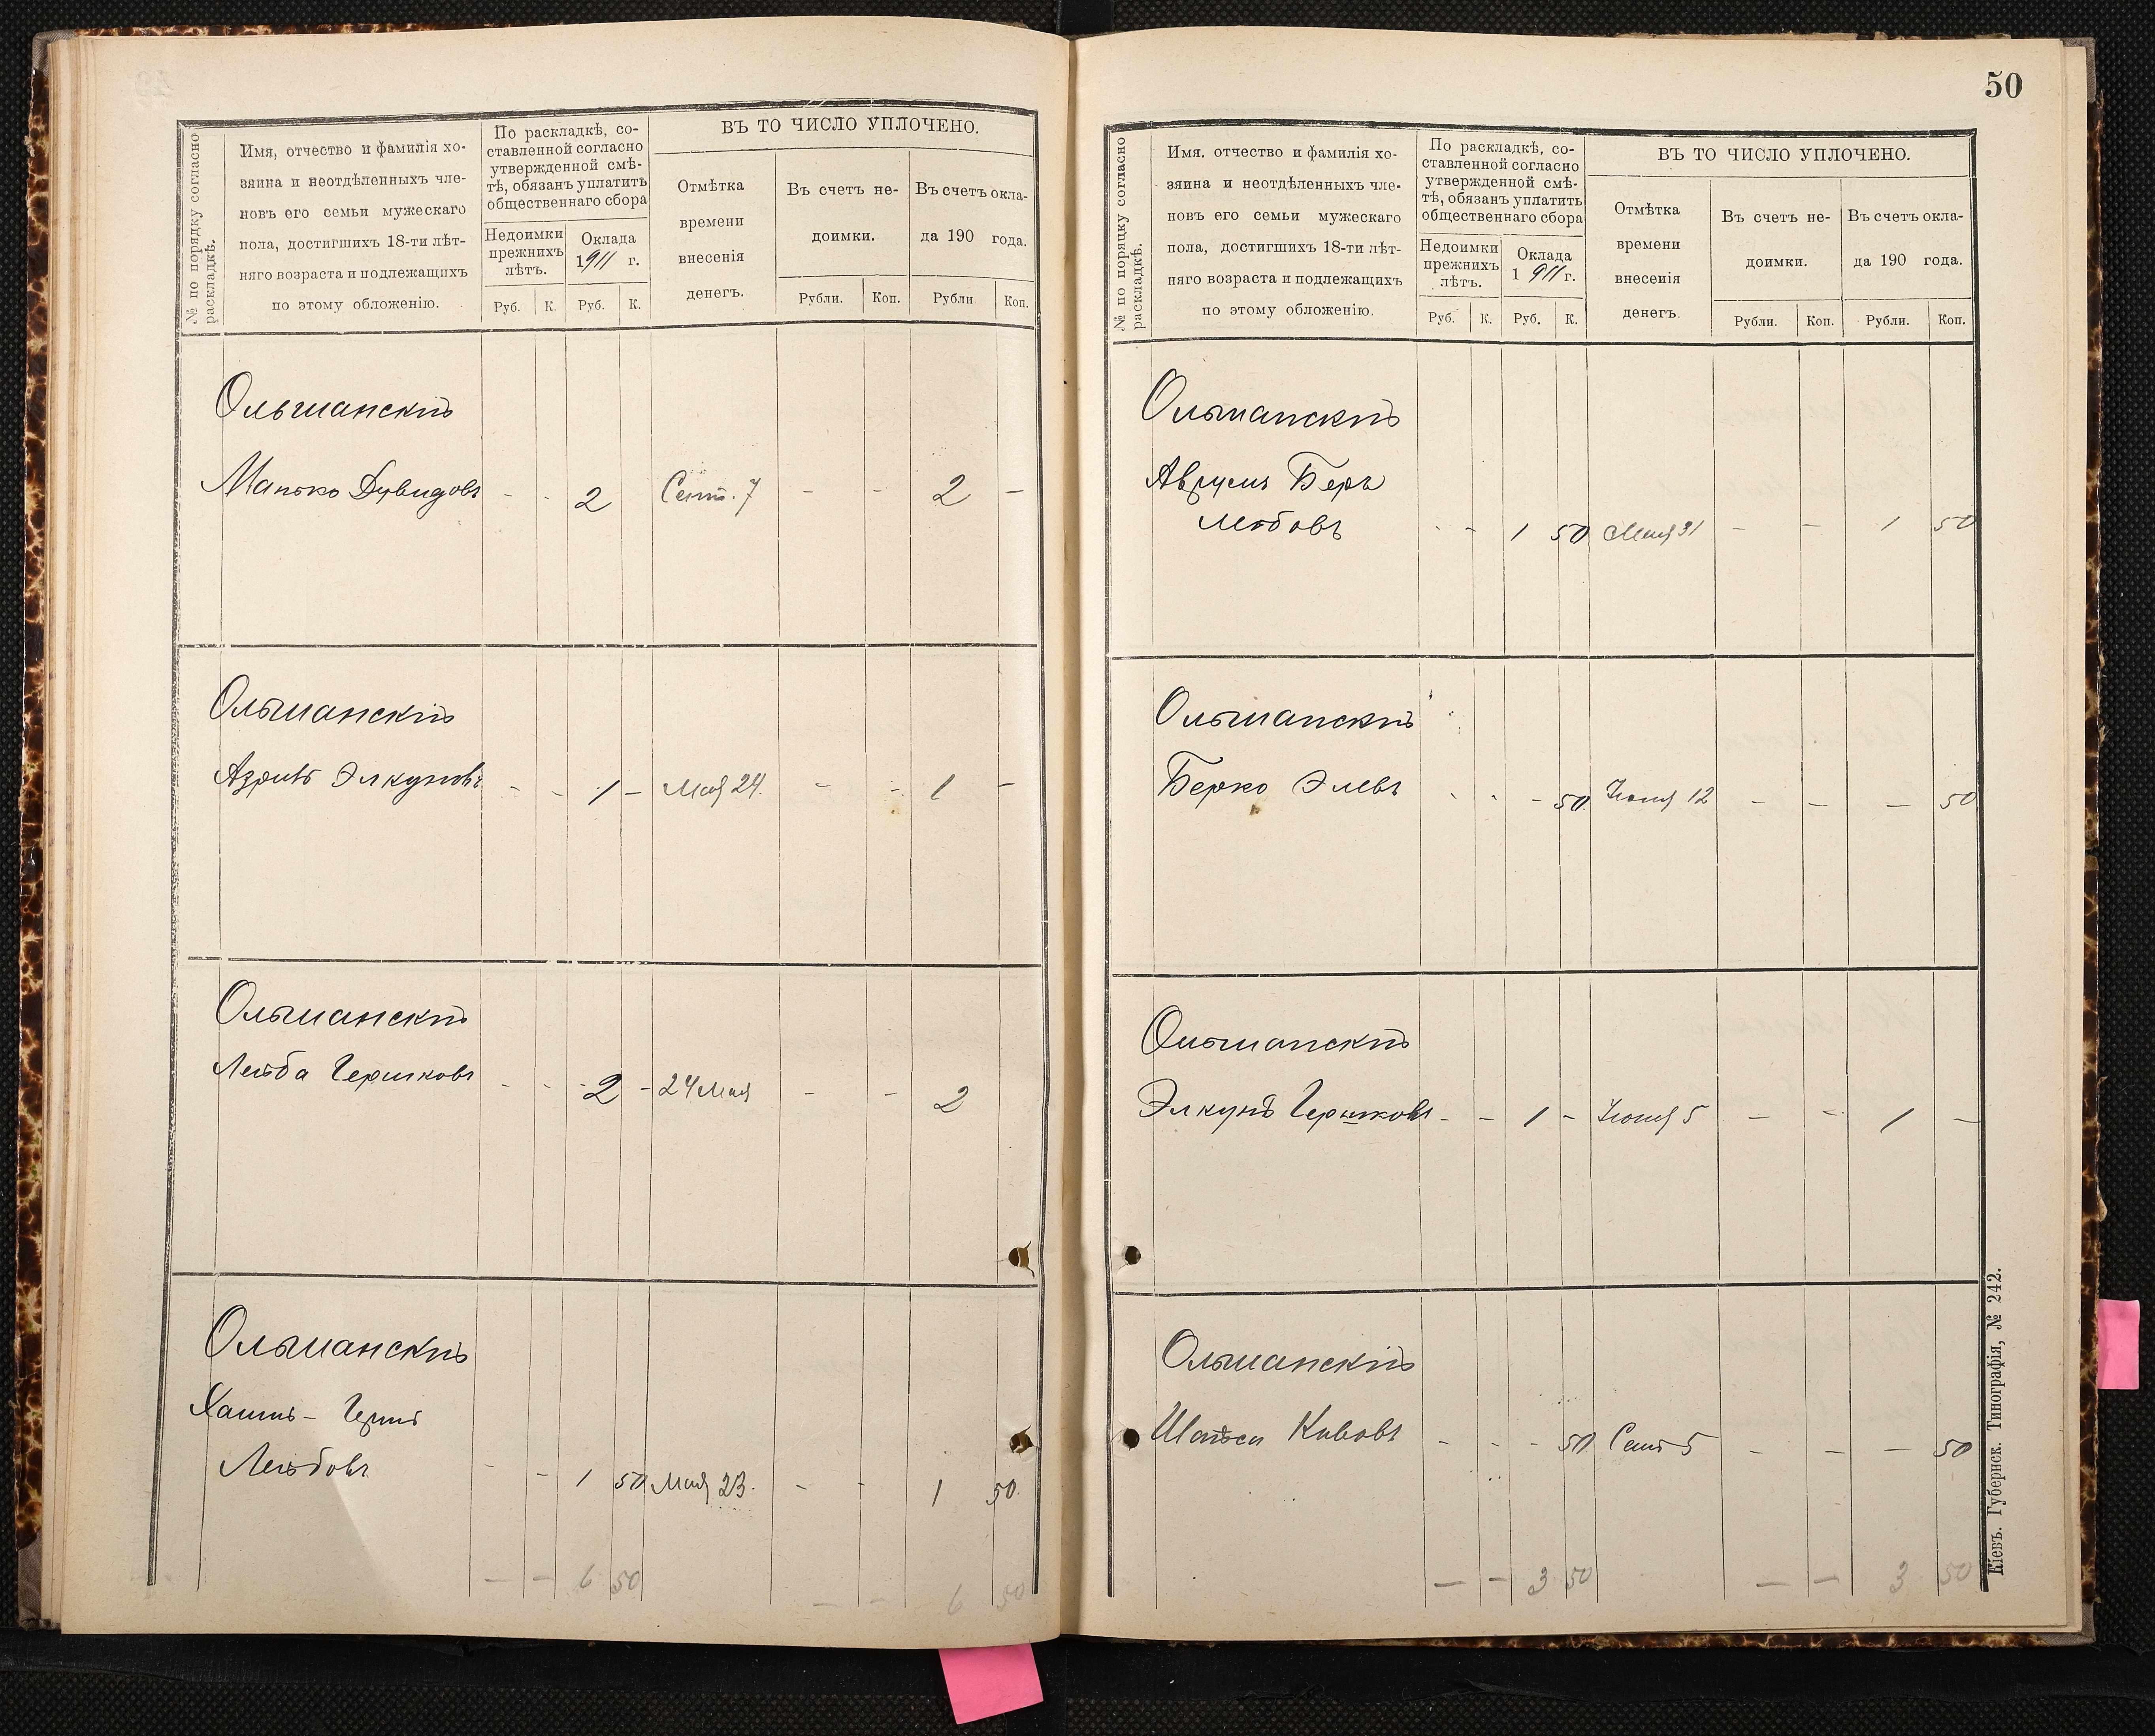 № по порядку согласно
раскладкѣ.
Имя, отчество и фамилія хо-
зяина и неотдѣленныхъ чле-
новъ его семьи мужескаго
пола, достигшихъ 18-ти лѣт-
няго возраста и подлежащихъ
по этому обложенію.
По раскладкѣ, со-
ставленной согласно
утвержденной смѣ-
тѣ, обязанъ уплатить
общественнаго сбора
Недоимки
прежнихъ
лѣтъ.
Оклада
1911 г.
Руб. К. Руб. К.
ВЪ ТО ЧИСЛО УПЛОЧЕНО.
Отмѣтка
времени
внесенія
денегъ.
Въ счетъ не-
доимки.
Въ счетъ окла-
да 190 года.
Рубли. Коп. Рубли Коп.
Ольшанскій
Манько Дувидовъ - - 2 Сент. 7 - - 2 -
Ольшанскій
Азріль Элкуновъ - - 1 - Мая 24. - - 1 -
Ольшанскій
Лейба Гершковъ - - 2 - 24 Мая - - 2
Ольшанскій
Хаимъ - Герш
Лейбовъ - - 1 50 Мая 23. - - 1 50.
— — 6 50 — - 6 50
50
№ по порядку согласно
раскладкѣ.
Имя. отчество и фамилія хо-
зяина и неотдѣленныхъ чле-
новъ его семьи мужескаго
пола, достигшихъ 18-ти лѣт-
няго возраста и подлежащихъ
по этому обложенію.
По раскладкѣ, со-
ставленной согласно
утвержденной смѣ-
тѣ, обязанъ уплатить
общественнаго сбора
Недоимки
прежнихъ
лѣтъ.
Оклада
1 911 г.
Руб. К. Руб. К.
ВЪ ТО ЧИСЛО УПЛОЧЕНО.
Отмѣтка
времени
внесенія
денегъ.
Въ счетъ не-
доимки.
Въ счетъ окла-
да 190 года.
Рубли. Коп. Рубли. Коп.
Ольшанскій
Аврумъ Беръ
Лейбовъ - - 1 50 Мая 31 - - 1 50
Ольшанскій
Берко Элевъ - - - 50. Іюня 12 - - - 50
Ольшанскій
Элкунъ Гершковъ - - 1 - Іюня 5 - - 1 -
Ольшанскій
Шапся Кивовъ - - - 50 Сент 5 - - - 50
— - 3 50 — — 3 50
Кіевъ. Губернск. Типографія, № 242.